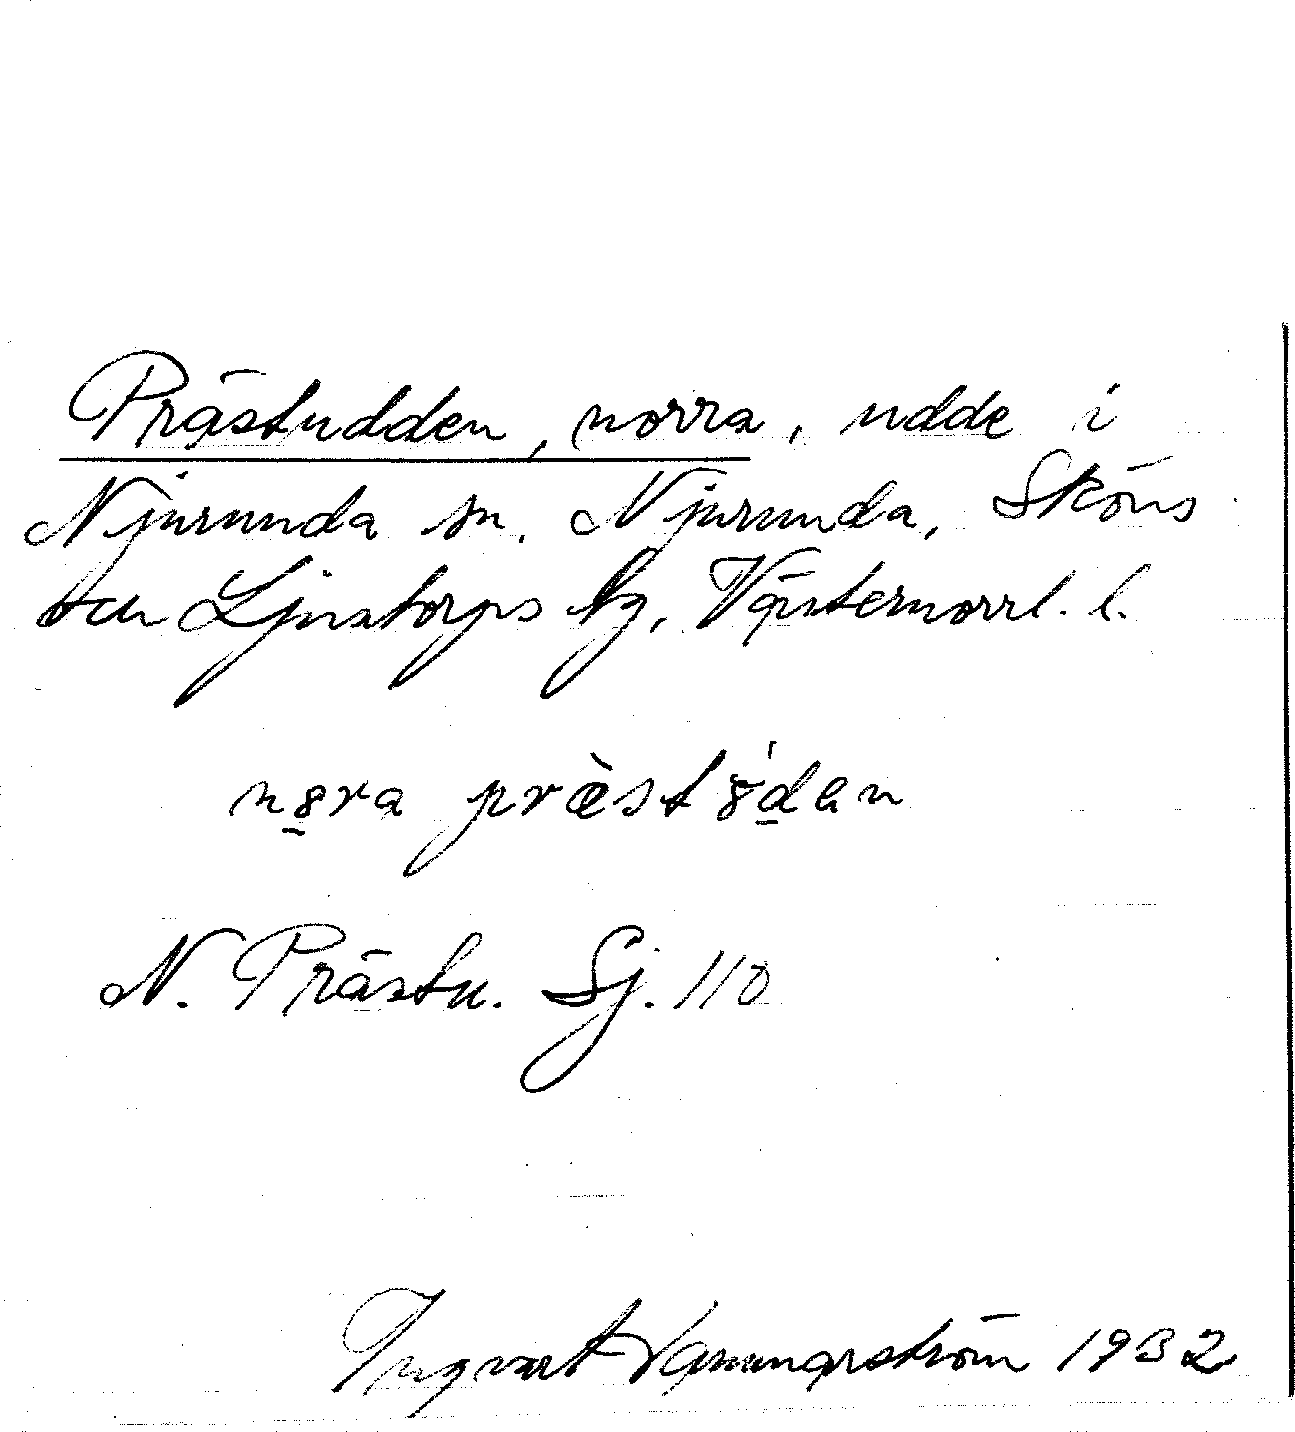 Prästudden, norra, udde i
Njurunda sn. Njurunda, Sköns
och Ljustorps tg, Västernorrl. l.
nȣra præ̀stȣ́dan
N. Prästu. Sj. 110
Ingvart Hammarström 1932